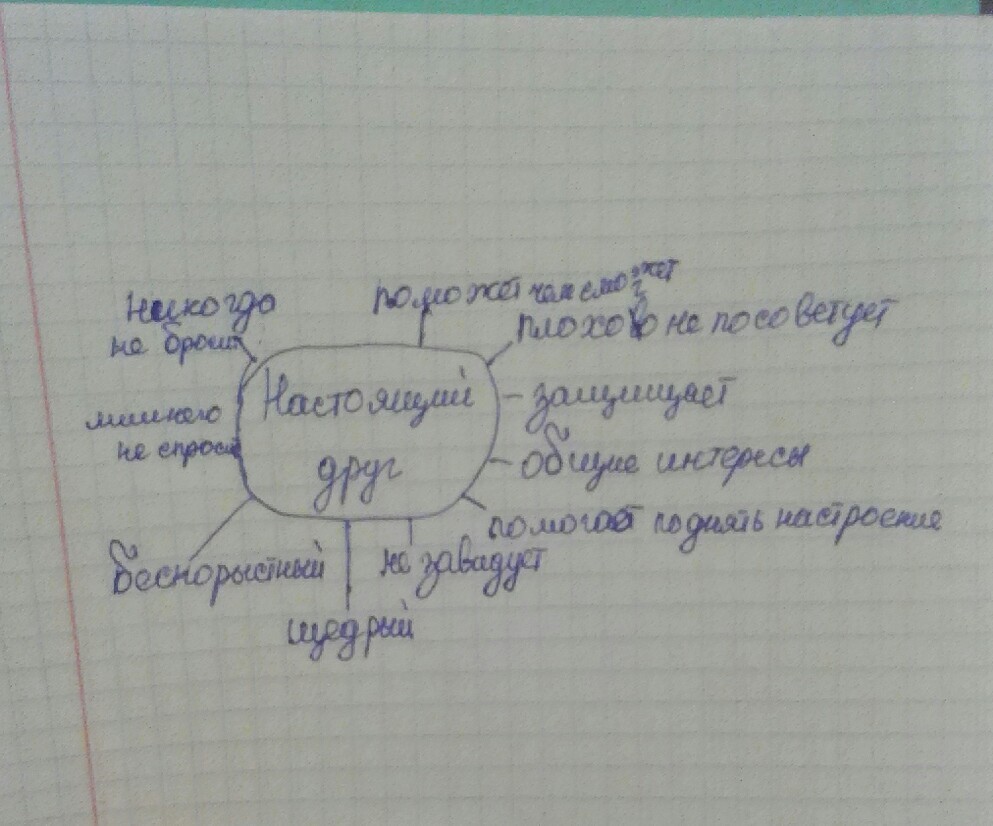 никогда
не бросит
поможет чем сможет
плохого не посоветует
Настоящий
друг
защищает
лишнего
не спросит
общие интересы
помогает поднять настроение
бескорыстный
не завадует
щедрый